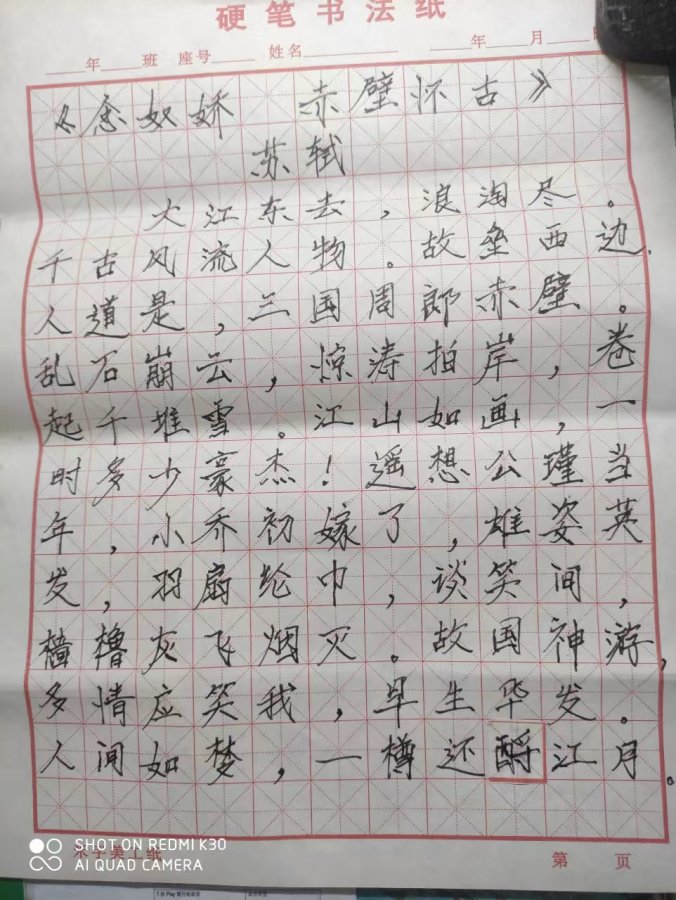 硬笔书法纸
年 班 座号 姓名 年 月
《念奴娇 赤壁怀古》
苏轼
大江东去，浪淘尽。
千古风流人物。故垒西边，
人道是，三国周郎赤壁。
乱石崩云，惊涛拍岸，卷
起千堆雪。江山如画，一
时多少豪杰！遥想公瑾当
年，小乔初嫁了，雄姿英
发，羽扇纶巾，谈笑间，
樯橹灰飞烟灭。故国神游，
多情应笑我，早生华发。
人间如梦，一樽还酹江月。
木子美工纸
第 页
SHOT ON REDMI K30
AI QUAD CAMERA